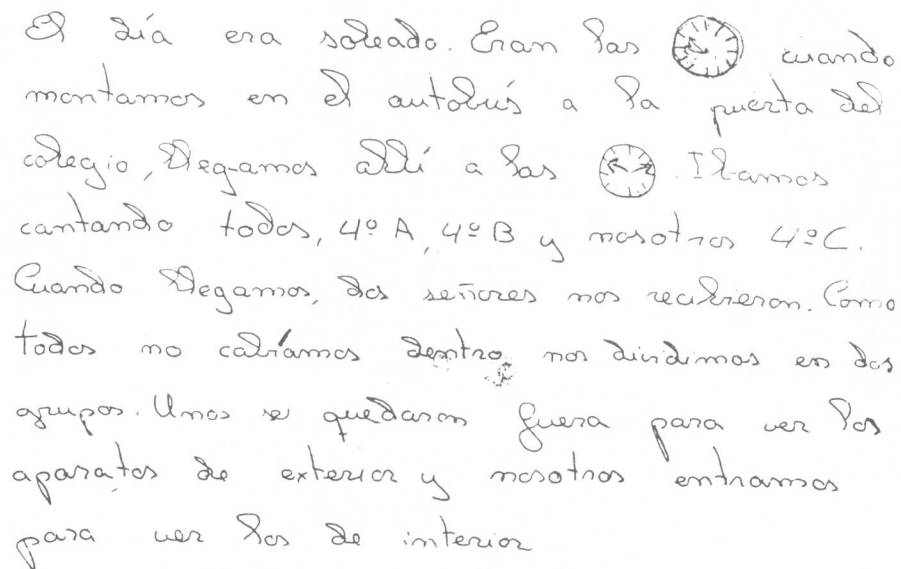 El día era soleado. Eran las cuando
montamos en el autobús a la puerta del
colegio, llegamos allí a las . Ibamos
cantando todos, 4º A, 4º B y nosotros 4º C.
Cuando llegamos, dos señores nos recibieron. Como
todos no cabíamos dentro nos dividimos en dos
grupos. Unos se quedaron fuera para ver los
aparatos de exterior y nosotros entramos
para ver los de interior